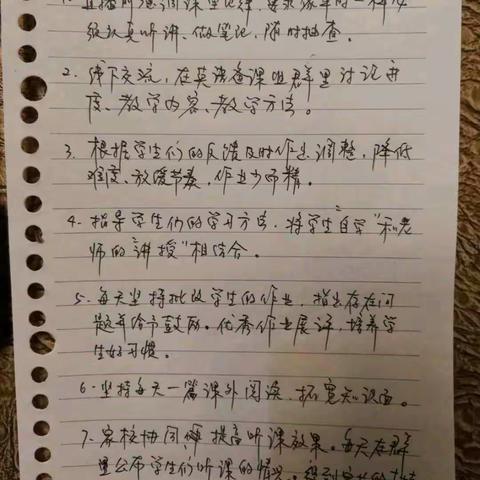 直播前强调课堂纪律,要求像平时一样
认真听讲、做笔记,随时抽查。
2. 线下交流,在英语备课组群里讨论进
度、教学内容、教学方法。
3. 根据学生们的反馈及时作出调整,降低
难度、放缓节奏,作业少而精。
4. 指导学生们的学习方法,将学生"自学"和老
师的"讲授"相结合。
5. 每天坚持批改学生的作业,指出存在问
题并给予鼓励。优秀作业展评,培养学
生好习惯。
6. 坚持每天一篇课外阅读,拓宽知识面。
7. 家校协同,提高听课效果。每天在群
里公布学生们听课的情况。得到家长的